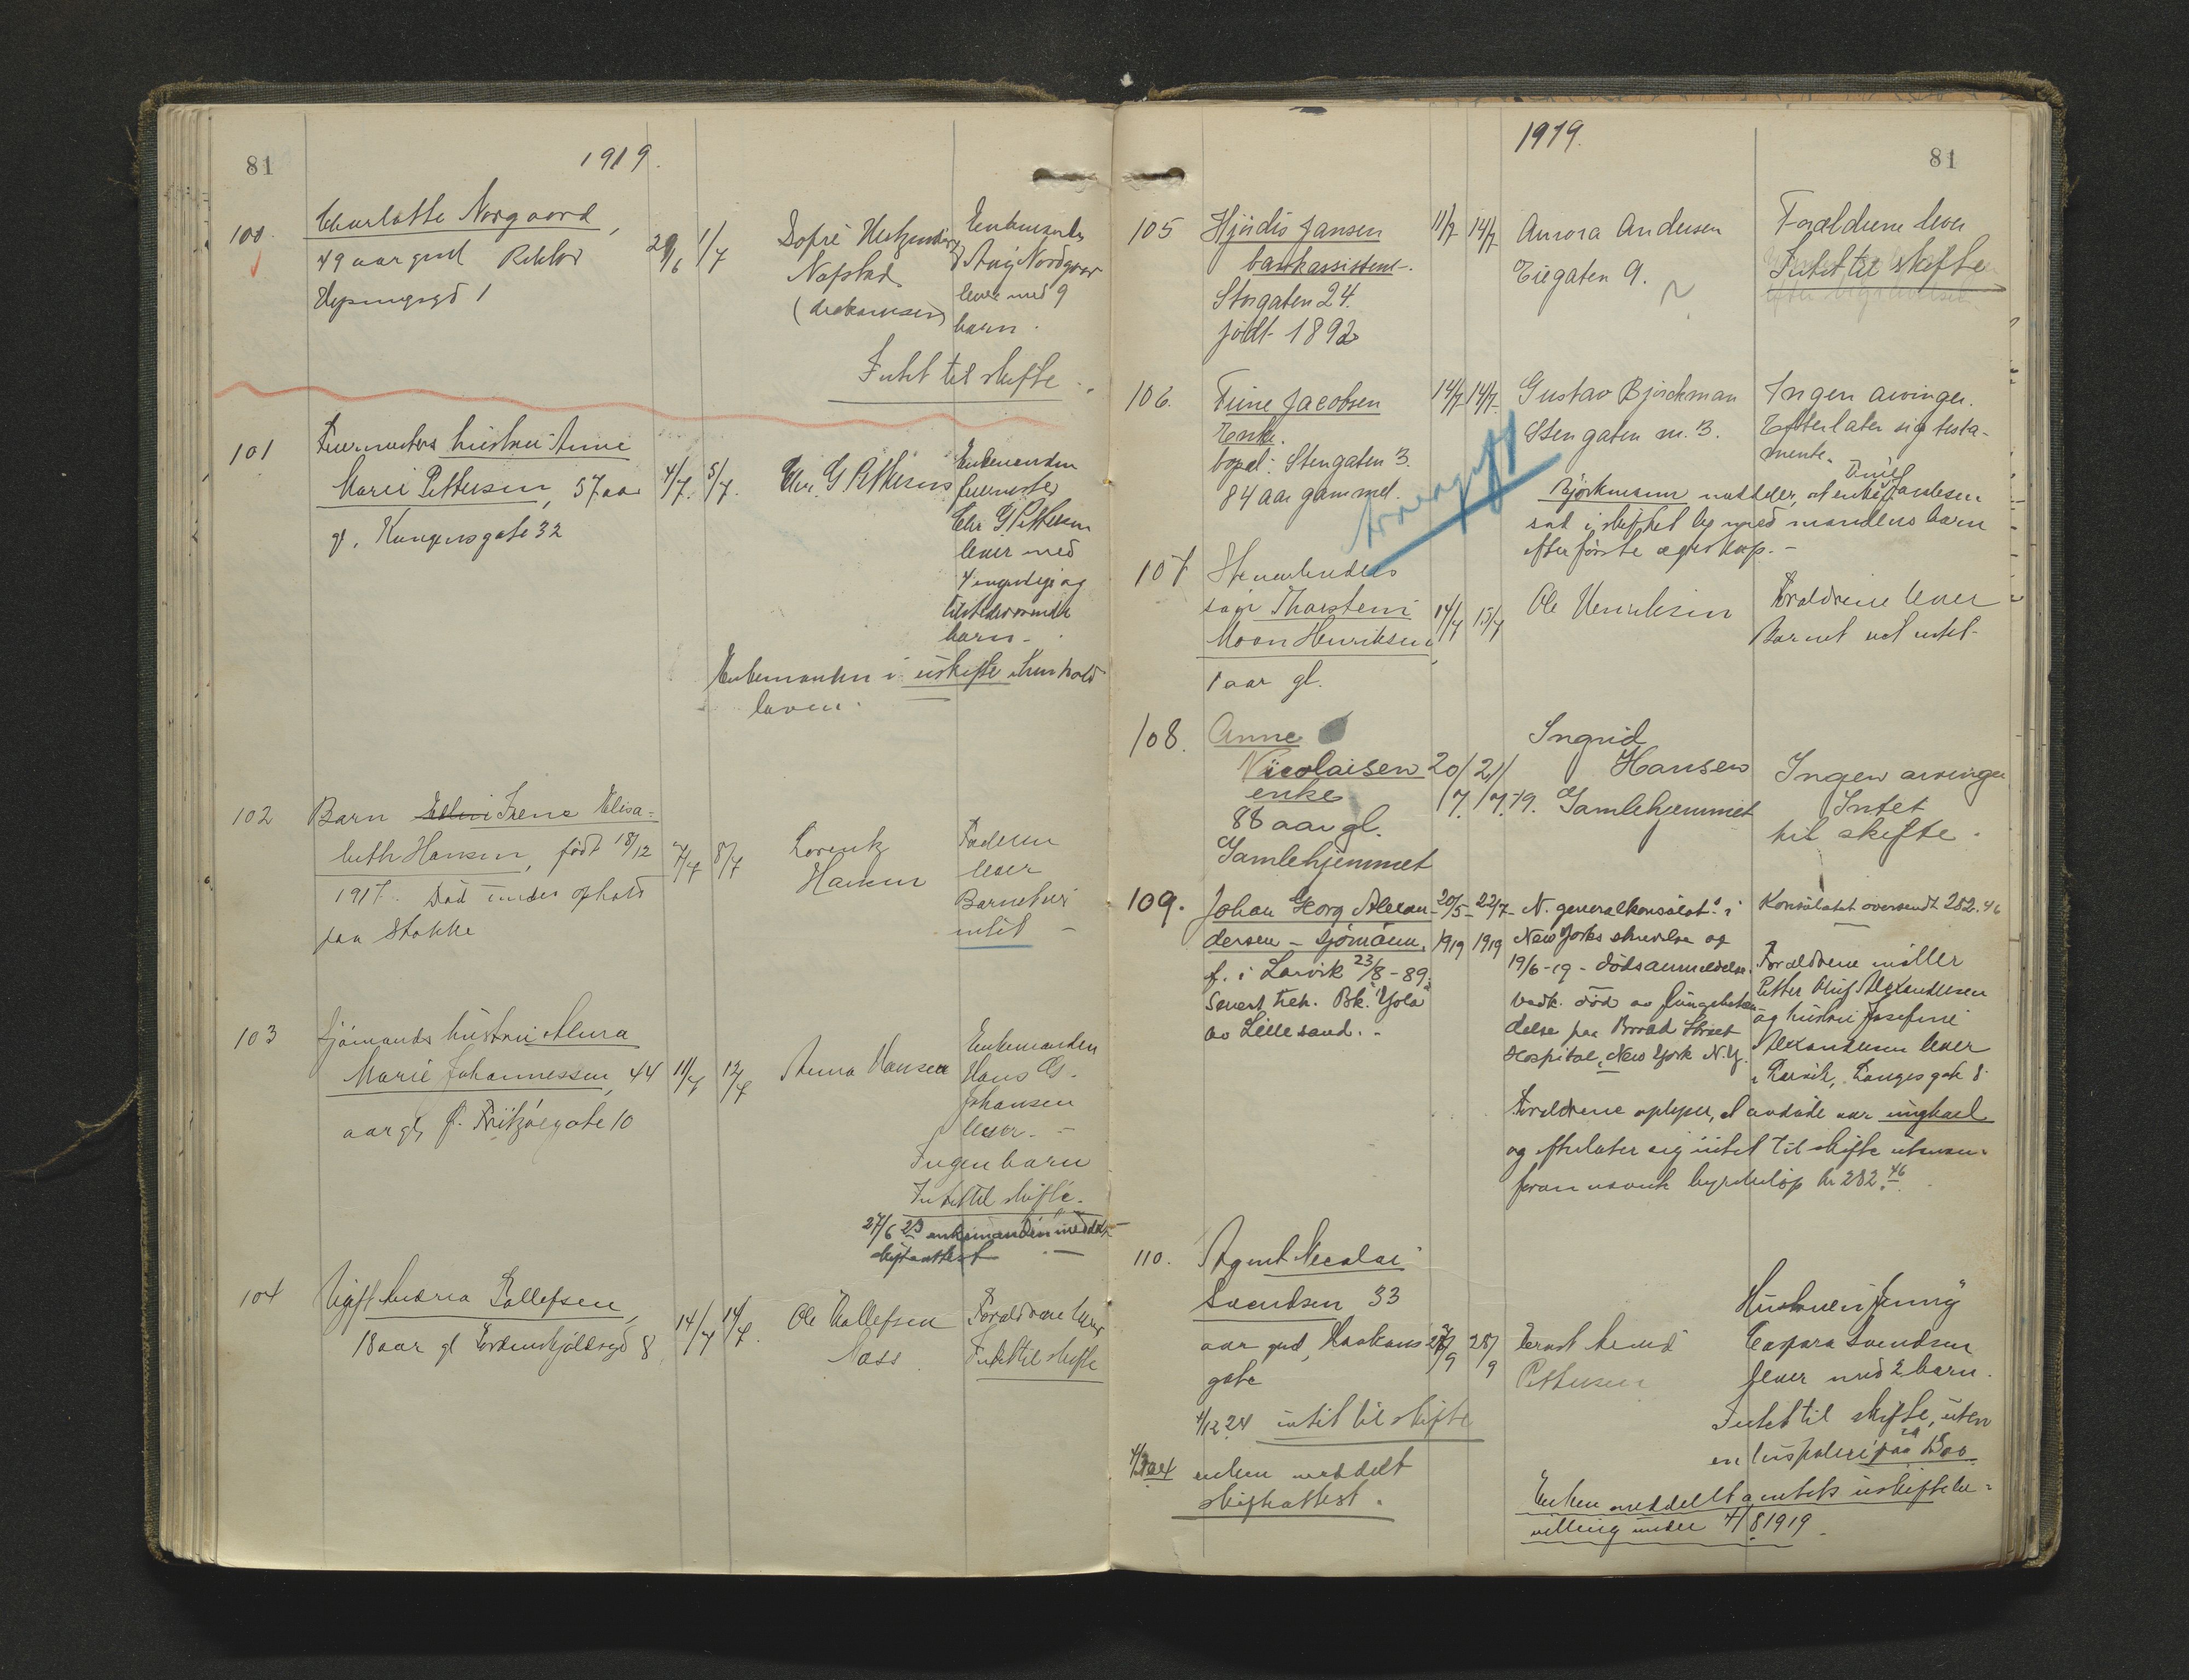 81
1919.
100.
Charlotte Norgaard,
49 aar gml Rektor
29/6 1/7
Nafstad
Enkemanden
Aug. Nordgaar
lever med 9
barn.
Intet til skifte.
101
hustru Anne
Marie Pettersen, 57 aar
gl. Kongensgate 32
4/7. 5/7.
Chr. G Pettersens
Enkemanden
Chr G Pettersen
lever med
4 myndige og
tilstedeværende
barn.
Enkemanden i uskifte i henhold
loven.
102
Barn Irene Elisa-
beth Hansen, født 18/12
1917. Død under ophold
paa Stokke
7/7 8/7
Lorentz
Hansen
Faderen
lever
Barnet
intet
103
Sjömands hustru Alma
Marie Johannessen, 44
aar gl, f. Fritzöegate 10
11/7 12/7
Anna Hansen
Enkemanden
Hans
Johansen
lever. -
Ingen barn
Intet til skifte.
27/6 23 enkemanden meddelt
skifteattest
104
Ugift Maria Tollefsen,
18 aar gl Tordenskjoldsgd 8
14/7 14/7.
Ole Tollefsen
Næss
Forældrene lever
Intet til skifte
1919.
81
105
Hjördis Jansen
bankassistent.
Storgaten 24.
født 1892
11/7 14/7
Aurora Andersen
Eiegaten 9.
Forældrene lever
Intet til skifte
106.
Trine Jacobsen
Enke.
bopæl: Stengaten 3.
84 aar gammel.
14/7 14/7
Gustav Bjørckman
Stengaten nr. 3.
Ingen arvinger.
Efterlater sig testa-
mente.
Bjørkmann meddeler, at enkefru Jacobsen
sad i uskiftet bo med mandens barn
efter første egteskap. -
Arveavgift
107
søn Thorstein
Moon Henriksen
1 aar gl.
14/7 15/7
Ole Henriksen
Forældrene lever
Barnet eiet intet.
108.
Anne
Nicolaisen
enke
88 aar gl.
Gamlehjemmet
20/7. 21/7.19.
Ingrid
Hansen
Gamlehjemmet
Ingen arvinger
Intet
til skifte.
109.
Johan Georg Alexan-
dersen - sjømann.
f. i Larvik 23/8-89.
Senest tilh. Bk. "Yola"
av Lillesand. -
20/5- 22/7-
1919 1919
N. generalkonsulat i
New Yorks skrivelse og
19/6-19 - dødsanmeldelse.
Vedk. død av lungebeten-
delse paa Broad Street
Hospital, New York N.Y.
Konsulatet oversendt 282.46
Forældrene møller
Petter Oluf Alexandersen
og hustru Josefine
Alexandersen lever
i Larvik, Langes gate 8
Forældrene oplyser, at avdøde var ungkarl
og efterlater sig intet til skifte utenom
foran nævnte beløp kr 282.46
110.
Agent Nicolai
Svendsen 33
aar gml, Haakons
gate
28/9
Ernst
Pettersen
Hustruen Jenny
Caspara Svendsen
lever med 2 barn.
Intet til skifte, uten
en livspolice
4/12 24 intet til skifte
enken meddelt
skifteattest.
Enken meddelt amtets uskiftebe-
villing under 4/8 1919.